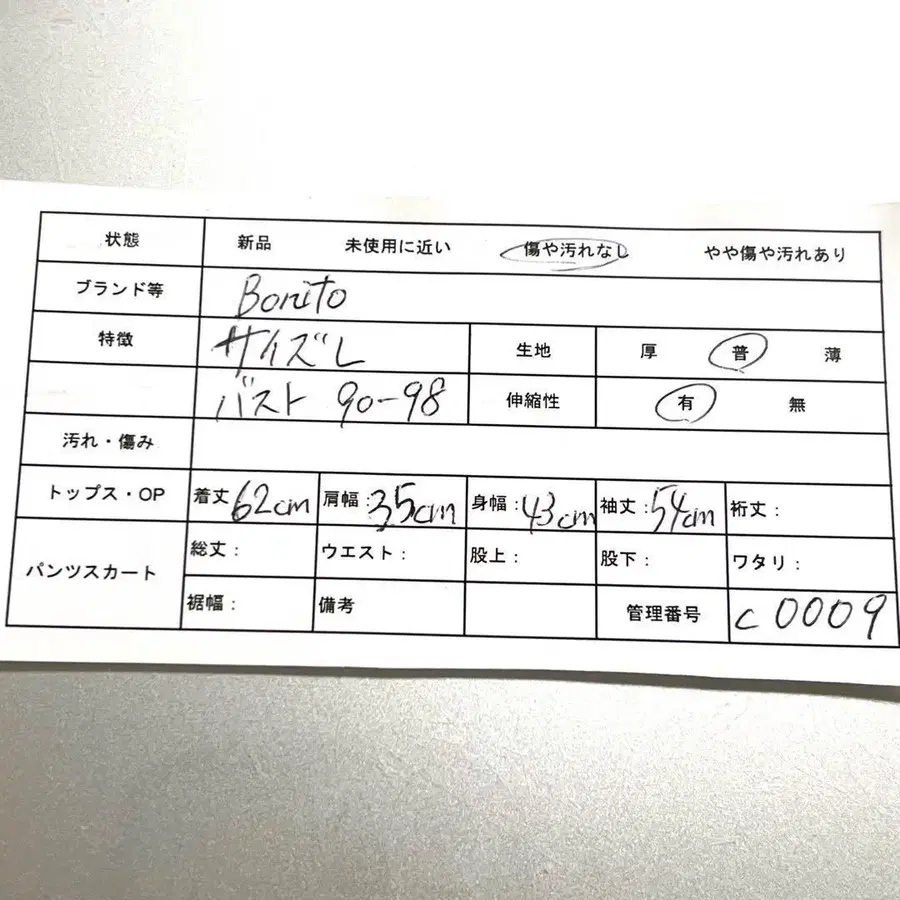 状態 新品 未使用に近い 傷や汚れなし やや傷や汚れあり
ブランド等 Bonito
特徴 サイズL 生地 厚 普 薄
バスト 90-98 伸縮性 有 無
汚れ・傷み
トップス・OP 着丈 62cm 肩幅: 35cm 身幅: 43cm 袖丈: 54cm 裄丈:
パンツスカート 総丈: ウエスト: 股上: 股下: ワタリ:
裾幅: 備考 管理番号 c0009